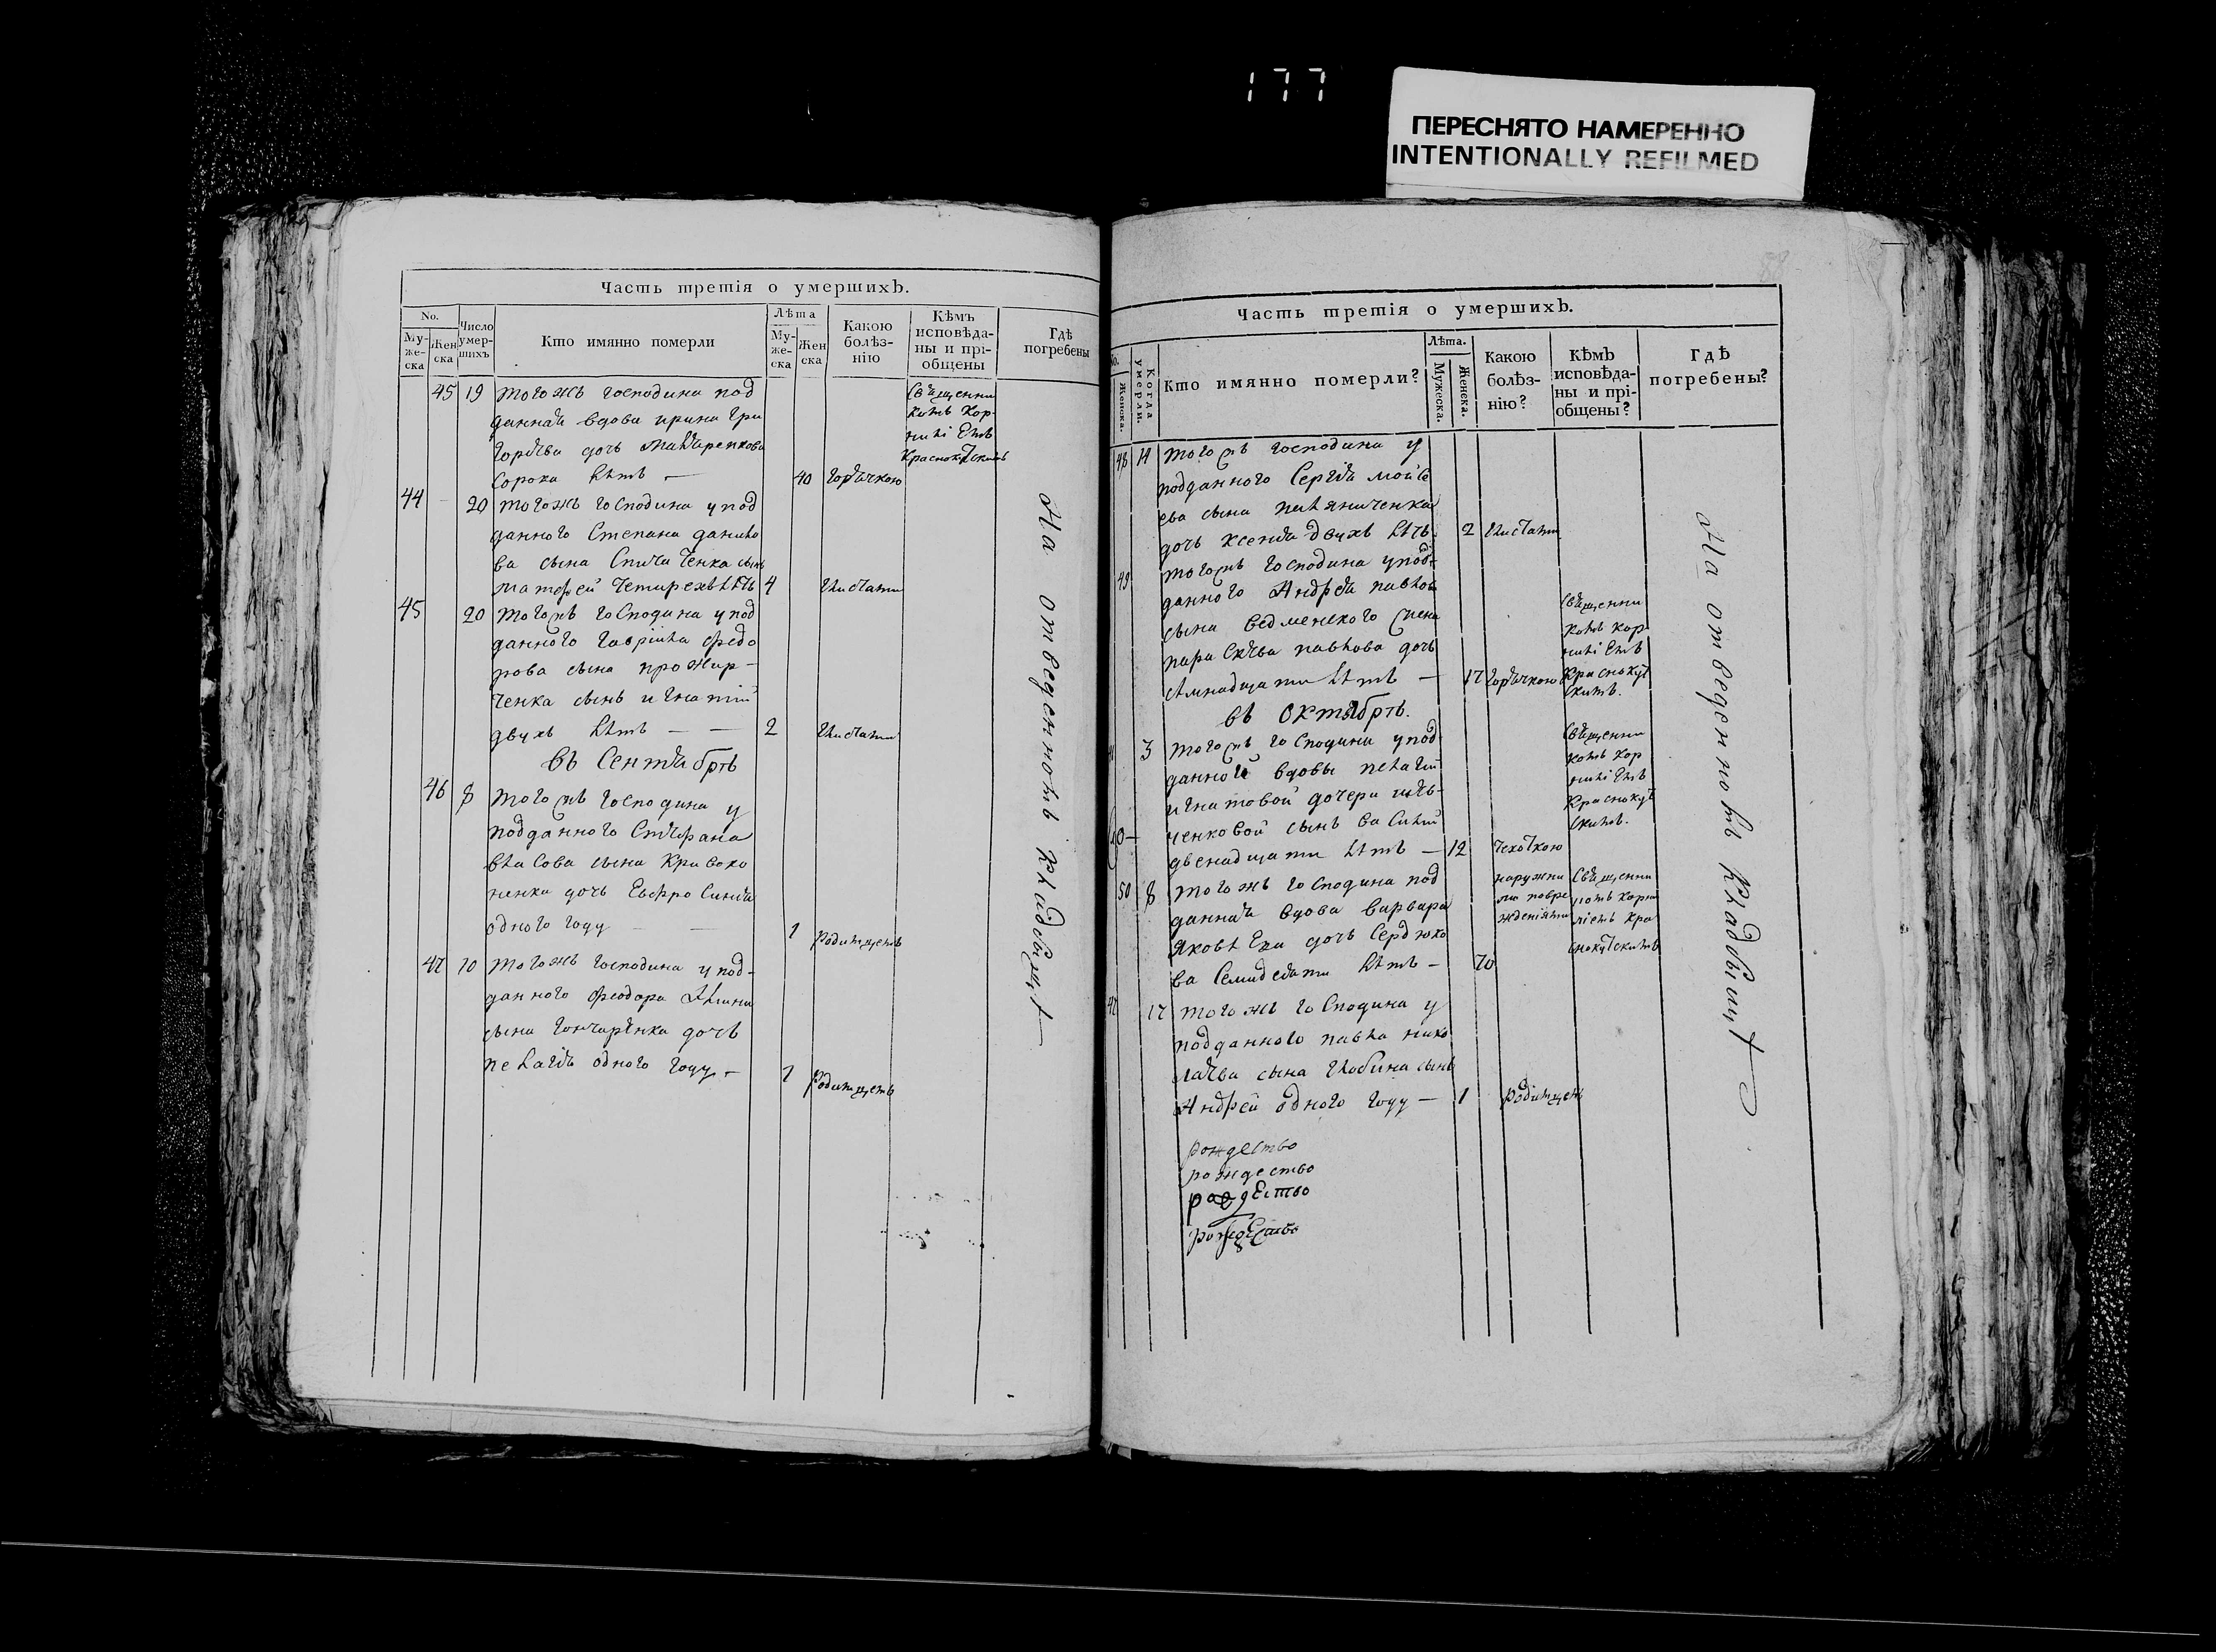 177
ПЕРЕСНЯТО НАМЕРЕННО
INTENTIONALLY REFILMED
Часть третія о умершихъ.
No.
Му-
же-
ска
Жен
ска
Число
умер-
шихъ
Кто имянно померли
Лѣта
Му-
же-
ска
Жен
ска
Какою
болѣз-
нію
Кѣмъ
исповѣда-
ны и прі-
общены
Гдѣ
погребены
45 19 тогожъ господина под
данная вдова ирина гри
горьева дочь
сорока лѣтъ — 40 горячкою
Священни
комъ Кор
ниліемъ
Краснокутскимъ
44 20 тогожъ господина у под
данного Степана данило
ва сына сынъ
матфей четирехъ лѣтъ 4 глистами
45 20 тогожъ господина у под
данного гавріила федо
рова сына прожир-
ченка сынъ игнатій
двухъ лѣтъ — — 2 глистами
въ Сентябрѣ
46 8 тогожъ господина у
подданного Стефана
власова сына Кривоко
ненка дочь Евфросинія
одного году 1 родимцемъ
47 10 тогожъ господина у под-
данного феодора
сына гончаренка дочь
пелагія одного году — 1 родимцемъ
На отведенномъ кладбищѣ
88
Часть третія о умершихъ.
No.
Женска.
Когда
умерли.
Кто имянно померли?
Лѣта.
Мужеска.
Женска.
Какою
болѣз-
нію?
Кѣмъ
исповѣда-
ны и прі-
общены?
Гдѣ
погребены?
48 14 тогожъ господина у
подданного Сергія мойсе
ева сына
дочь ксенія двухъ лѣтъ 2 глистами
49 тогожъ господина у под-
данного Андрея павлов
сына ведменского жена
параскева павлова дочь
семнадцати лѣтъ — 17 горячкою
Священни
комъ Кор
ниліемъ
Краснокут
скимъ.
въ Октябрѣ.
3 тогожъ господина у под
данной вдовы пелагии
игнатовой дочери
ченковой сынъ василий
двенадцати лѣтъ — 12 чехоткою
Священни
комъ Кор
ниліемъ
Краснокут
скимъ.
50 8 тогожъ господина под
данная вдова варвара
яковлева дочь Сердюко
ва семидесяти лѣтъ — 70
наружни
ми повре
жденіями
Священни
комъ Корни
ліемъ Кра
снокутскимъ
47 17 тогожъ господина у
подданного павла нико
лаева сына глобина сынъ
Андрей одного году — 1 родимцемъ
На отведенномъ кладбищѣ
рождество
рождество
рождество
рождество